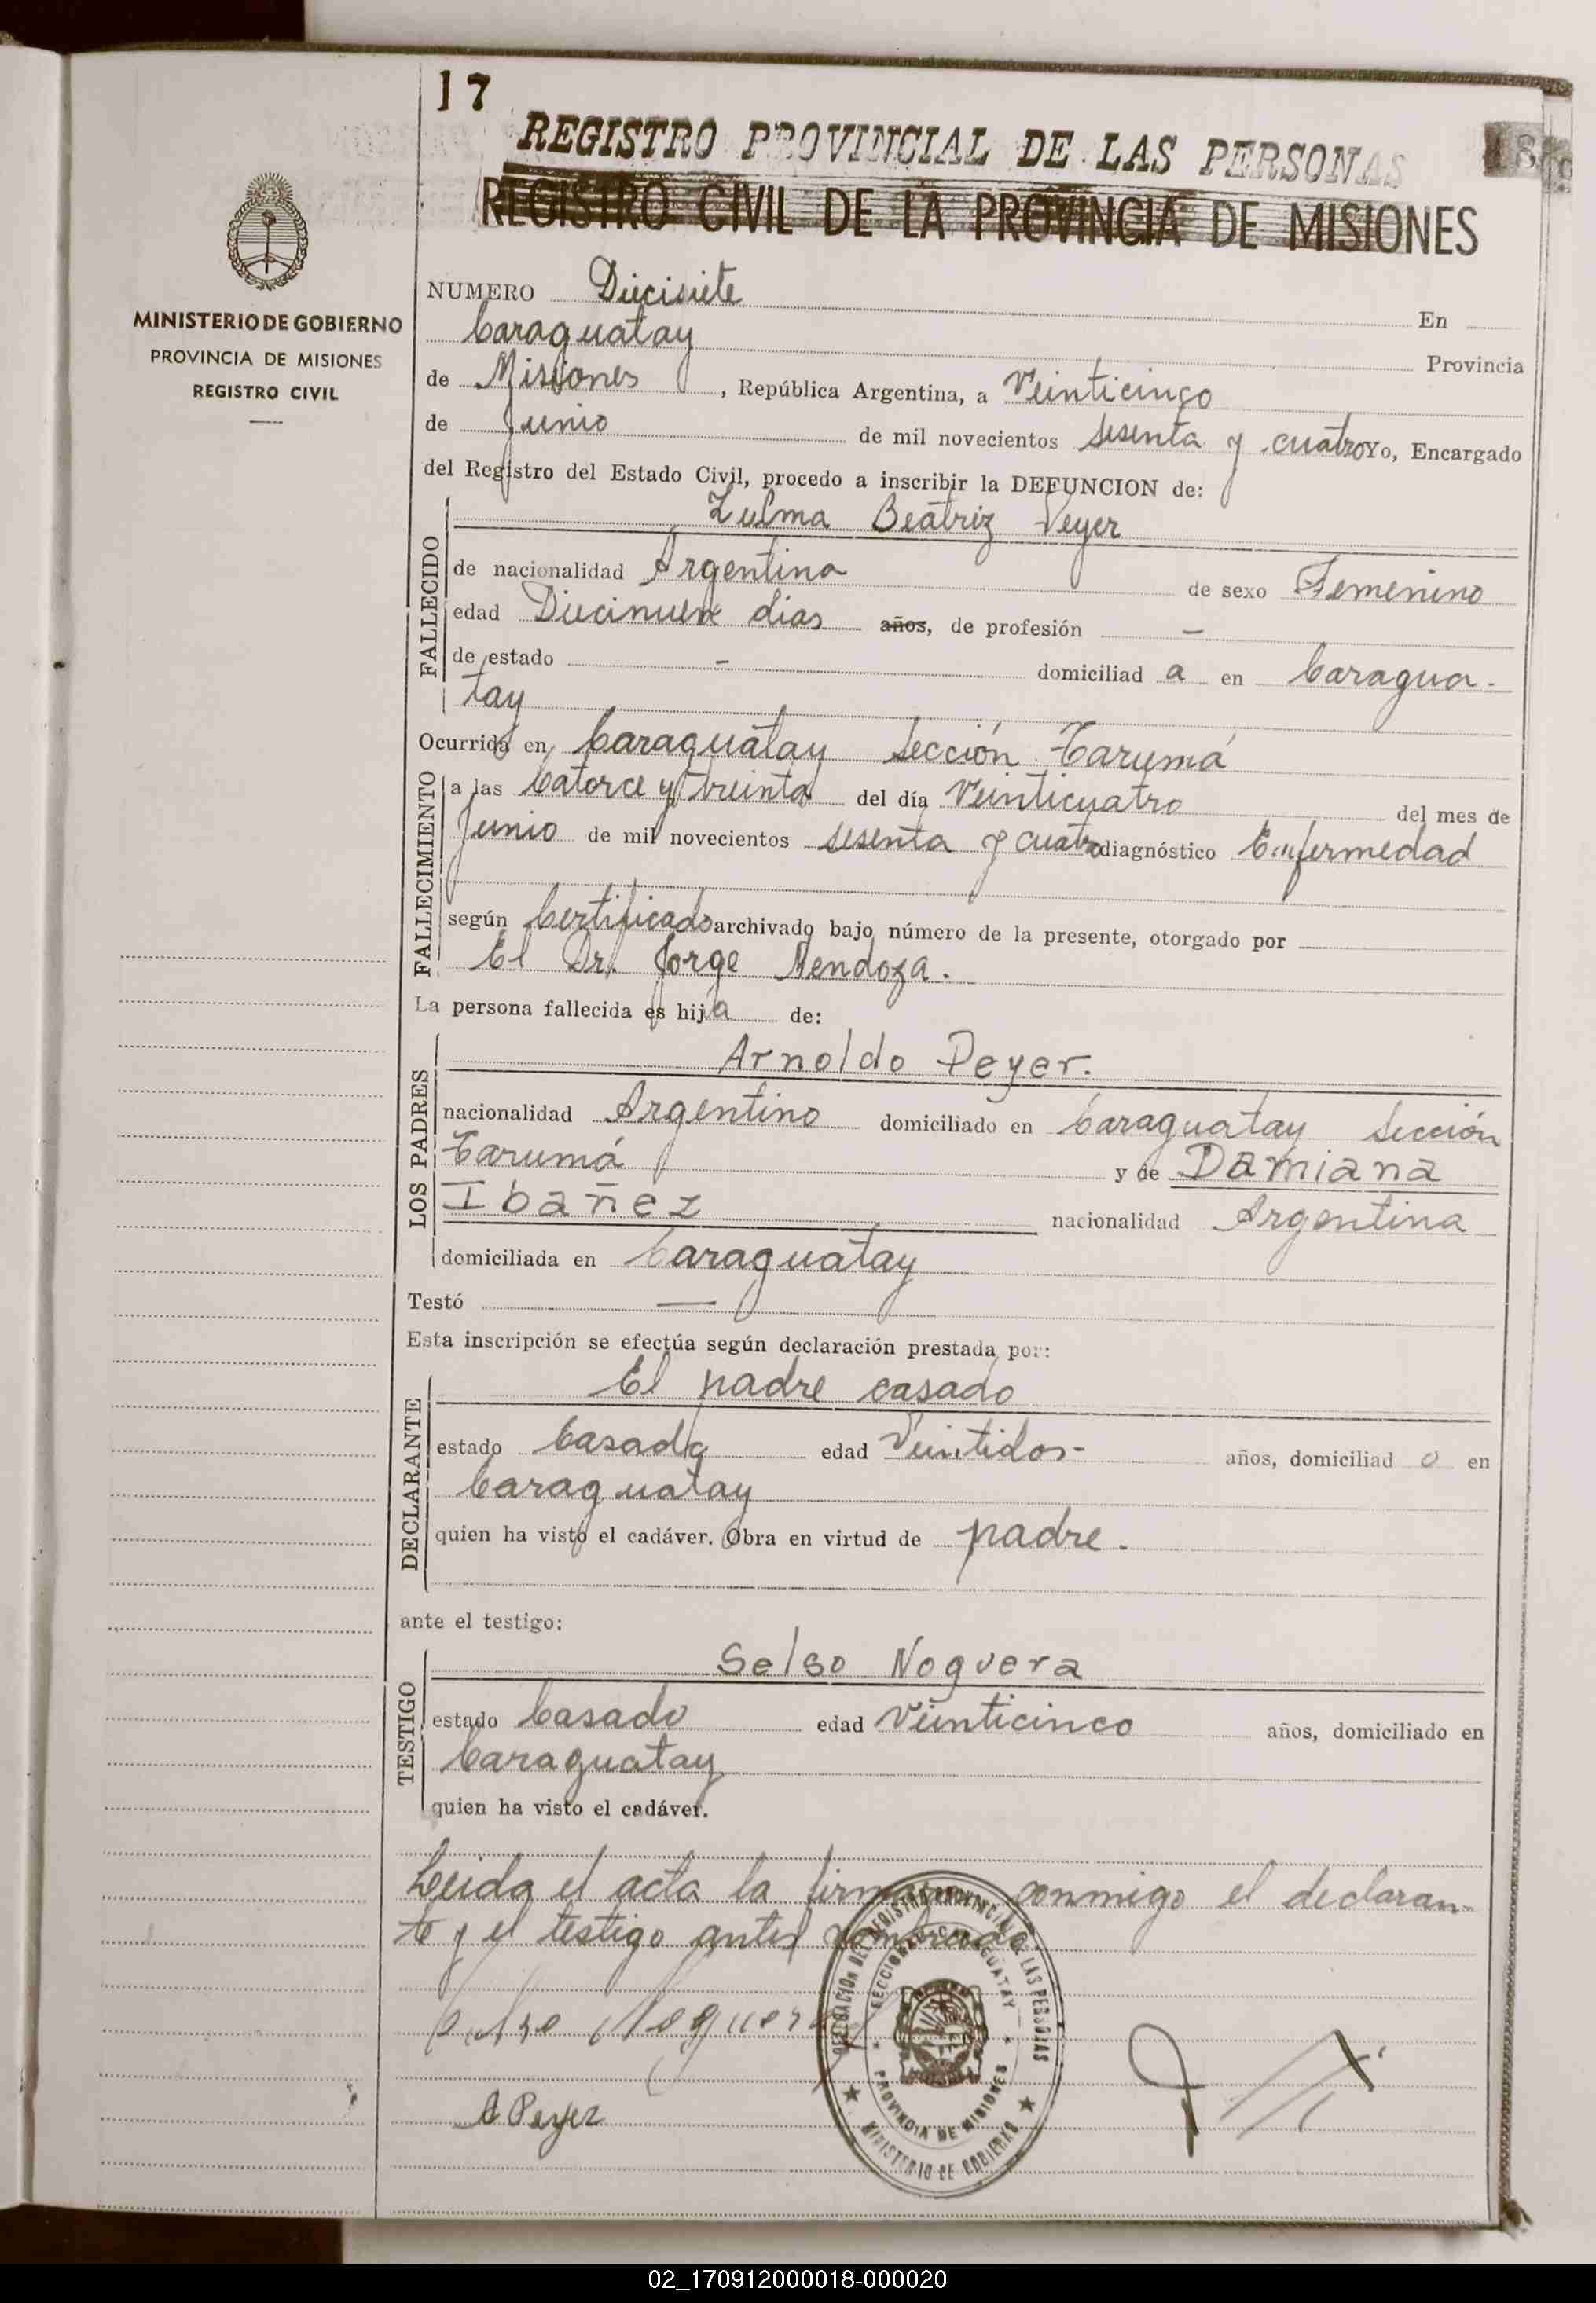 17
REGISTRO PROVINCIAL DE LAS PERSONAS
REGISTRO CIVIL DE LA PROVINCIA DE MISIONES
MINISTERIO DE GOBIERNO
PROVINCIA DE MISIONES
REGISTRO CIVIL
NUMERO Diecisiete En
Caraguatay Provincia
de Misiones, República Argentina, a Veinticinco
de Junio de mil novecientos sesenta y cuatro Yo, Encargado
del Registro del Estado Civil, procedo a inscribir la DEFUNCION de:
FALLECIDO
Zulma Beatriz Peyer
de nacionalidad Argentina de sexo Femenino
edad Diecinueve dias años, de profesión -
de estado - domiciliad a en Caragua-
tay
Ocurrida en Caraguatay Sección Tarumá
FALLECIMIENTO
a las Catorce y treinta del día Veinticuatro del mes de
Junio de mil novecientos sesenta y cuatro diagnóstico Enfermedad
según Certificado archivado bajo número de la presente, otorgado por
El Dr. Jorge Mendoza.
La persona fallecida es hija de:
LOS PADRES
Arnoldo Peyer.
nacionalidad Argentino domiciliado en Caraguatay Sección
Tarumá y de Damiana
Ibañez nacionalidad Argentina
domiciliada en Caraguatay
Testó —
Esta inscripción se efectúa según declaración prestada por:
DECLARANTE
El padre casado
estado Casado edad Veintidos- años, domiciliad o en
Caraguatay
quien ha visto el cadáver. Obra en virtud de padre.
ante el testigo:
TESTIGO
Selso Noguera
estado Casado edad Veinticinco años, domiciliado en
Caraguatay
quien ha visto el cadáver.
Leida el acta la firman conmigo el declaran-
te y el testigo antes nombrado.
DELEGACION DEL REGISTRO PROVINCIAL DE LAS PERSONAS
SECCIONAL CARAGUATAY
PROVINCIA DE MISIONES
MINISTERIO DE GOBIERNO
Noguera
A Peyer
02_170912000018-000020